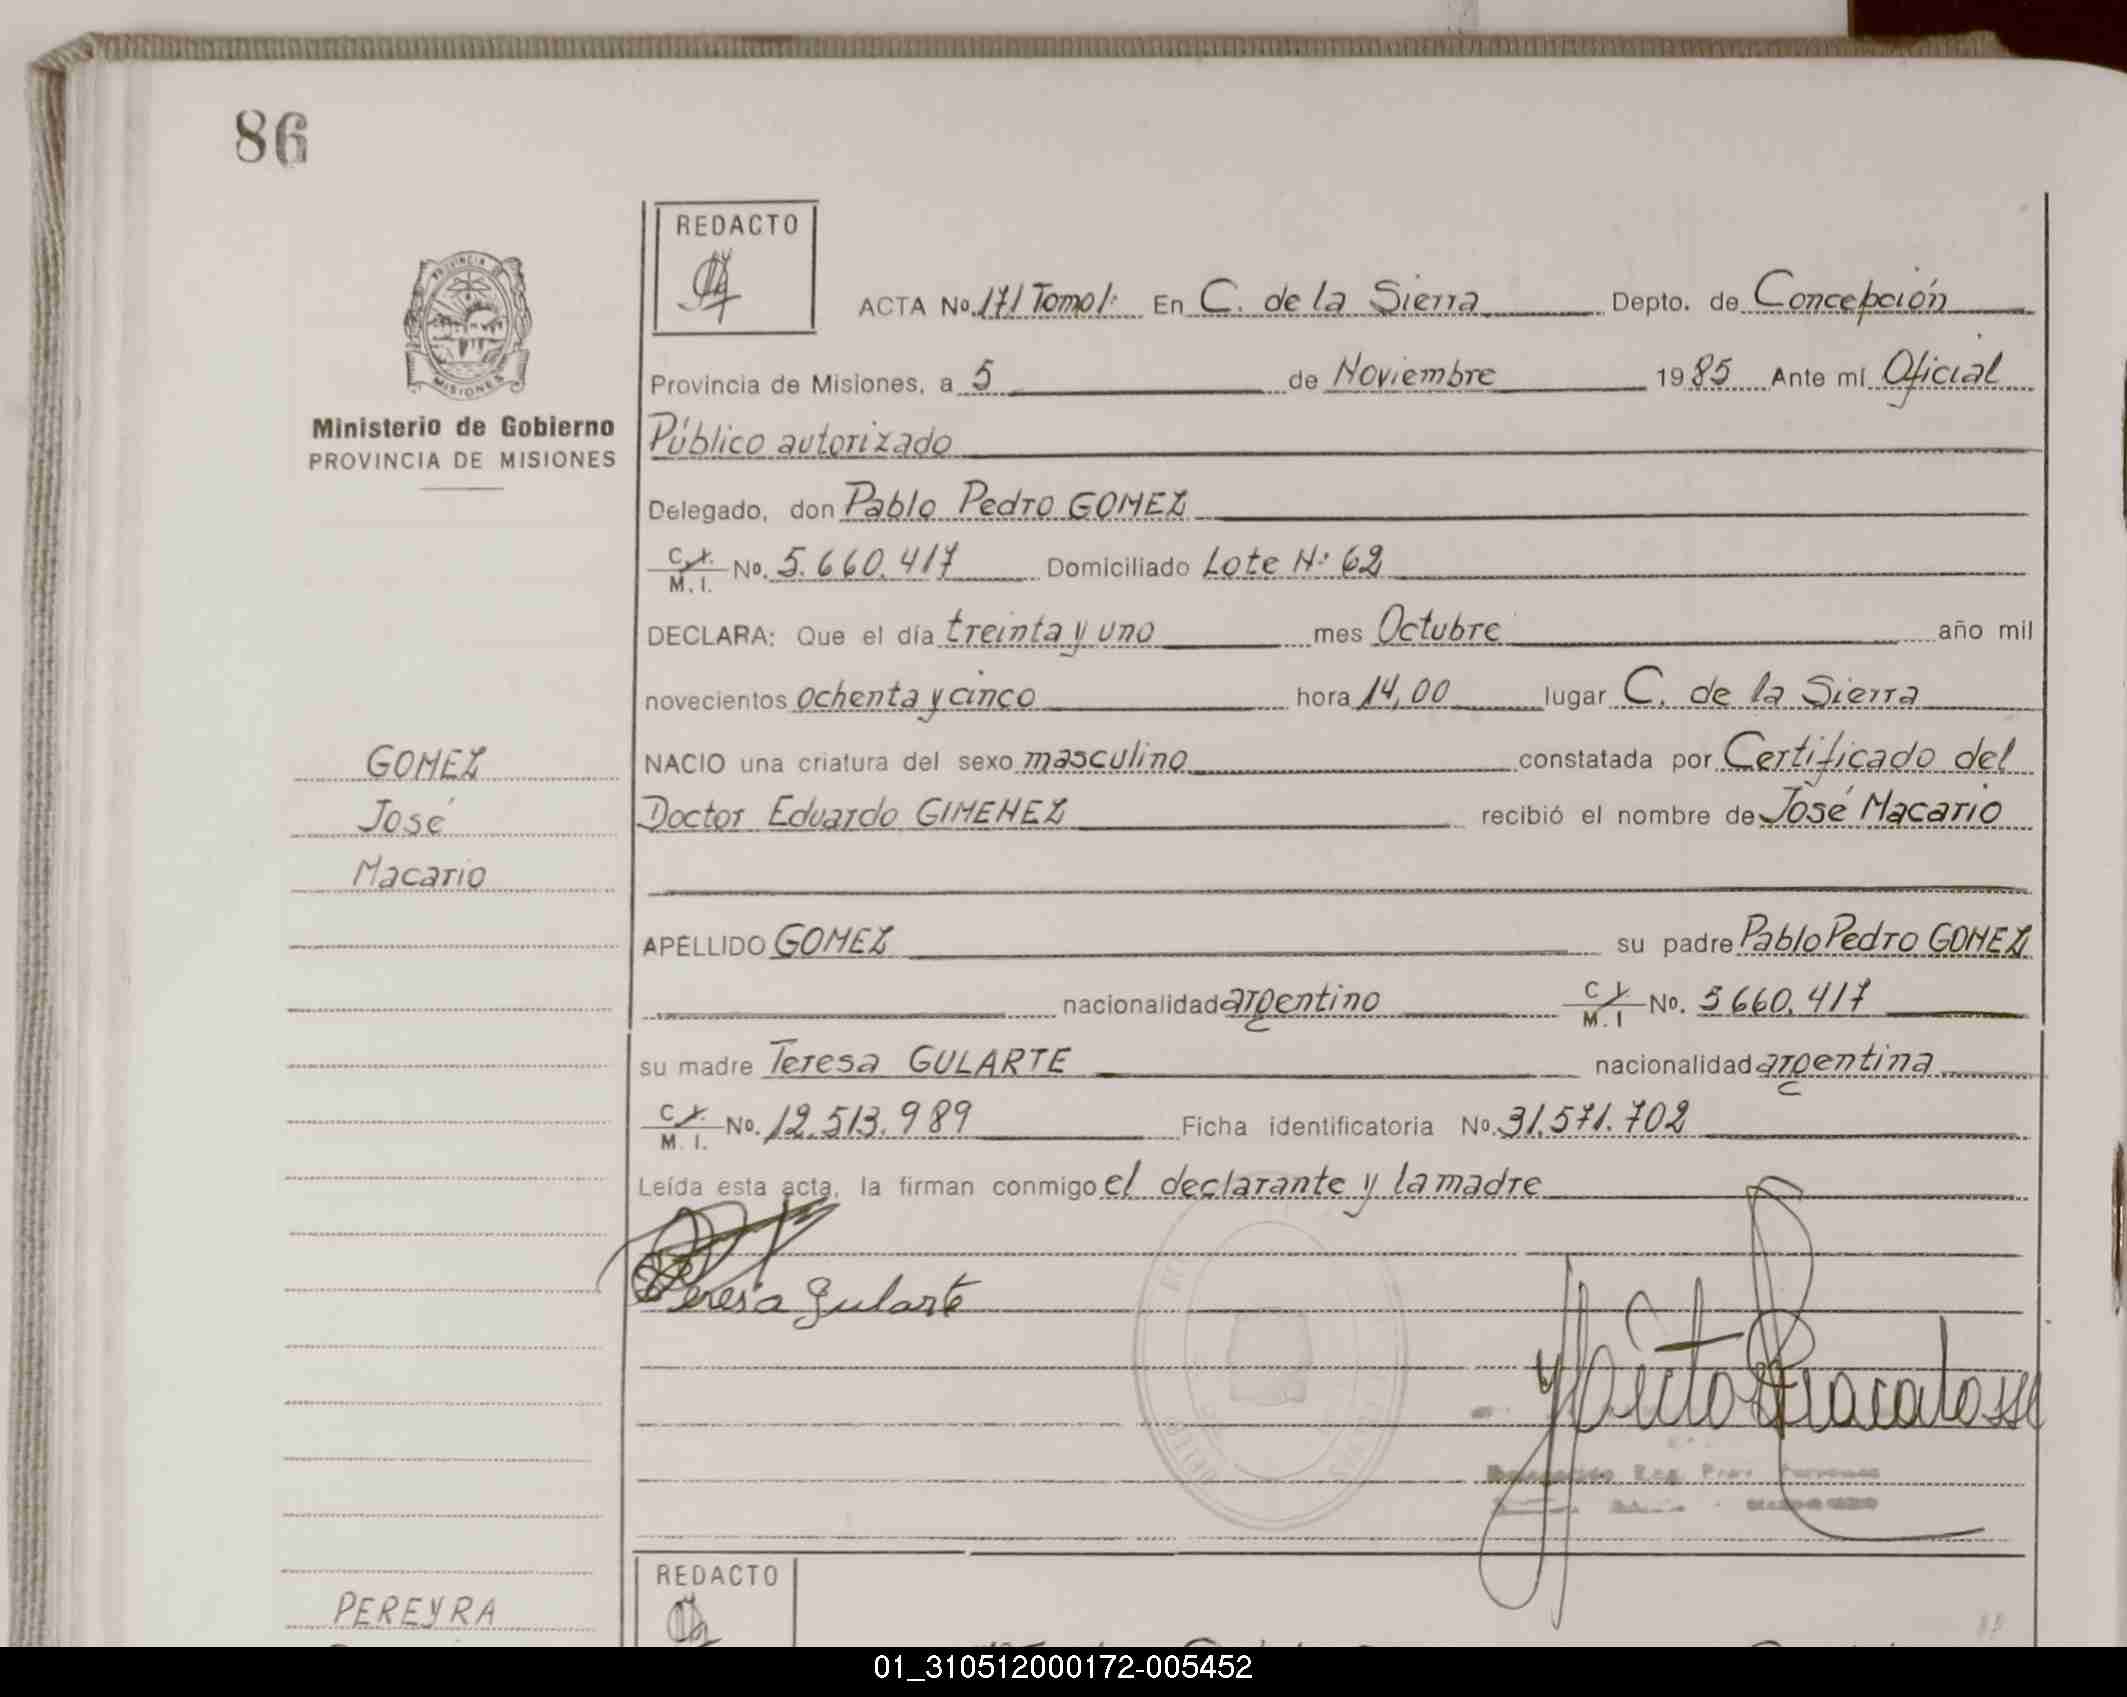 86
REDACTO
PROVINCIA DE
MISIONES
Ministerio de Gobierno
PROVINCIA DE MISIONES
ACTA No. 171 Tomo I. En C. de la Sierra Depto. de Concepción
Provincia de Misiones, a 5 de Noviembre 1985 Ante mí Oficial
Público autorizado
Delegado, don Pablo Pedro GOMEZ
C. I. M. I. No. 5.660.417 Domiciliado Lote N: 62
DECLARA: Que el día treinta y uno mes Octubre año mil
novecientos ochenta y cinco hora 14,00 lugar C. de la Sierra
GOMEZ
José
Macario
NACIO una criatura del sexo masculino constatada por Certificado del
Doctor Eduardo GIMENEZ recibió el nombre de José Macario
APELLIDO GOMEZ su padre Pablo Pedro GOMEZ
nacionalidad argentino C I. M. I No. 5660.417
su madre Teresa GULARTE nacionalidad argentina
C I. M. I. No. 12.513.989 Ficha identificatoria No. 31.571.702
Leída esta acta, la firman conmigo el declarante y la madre
Teresa Gularte
REDACTO
PEREYRA
01_310512000172-005452